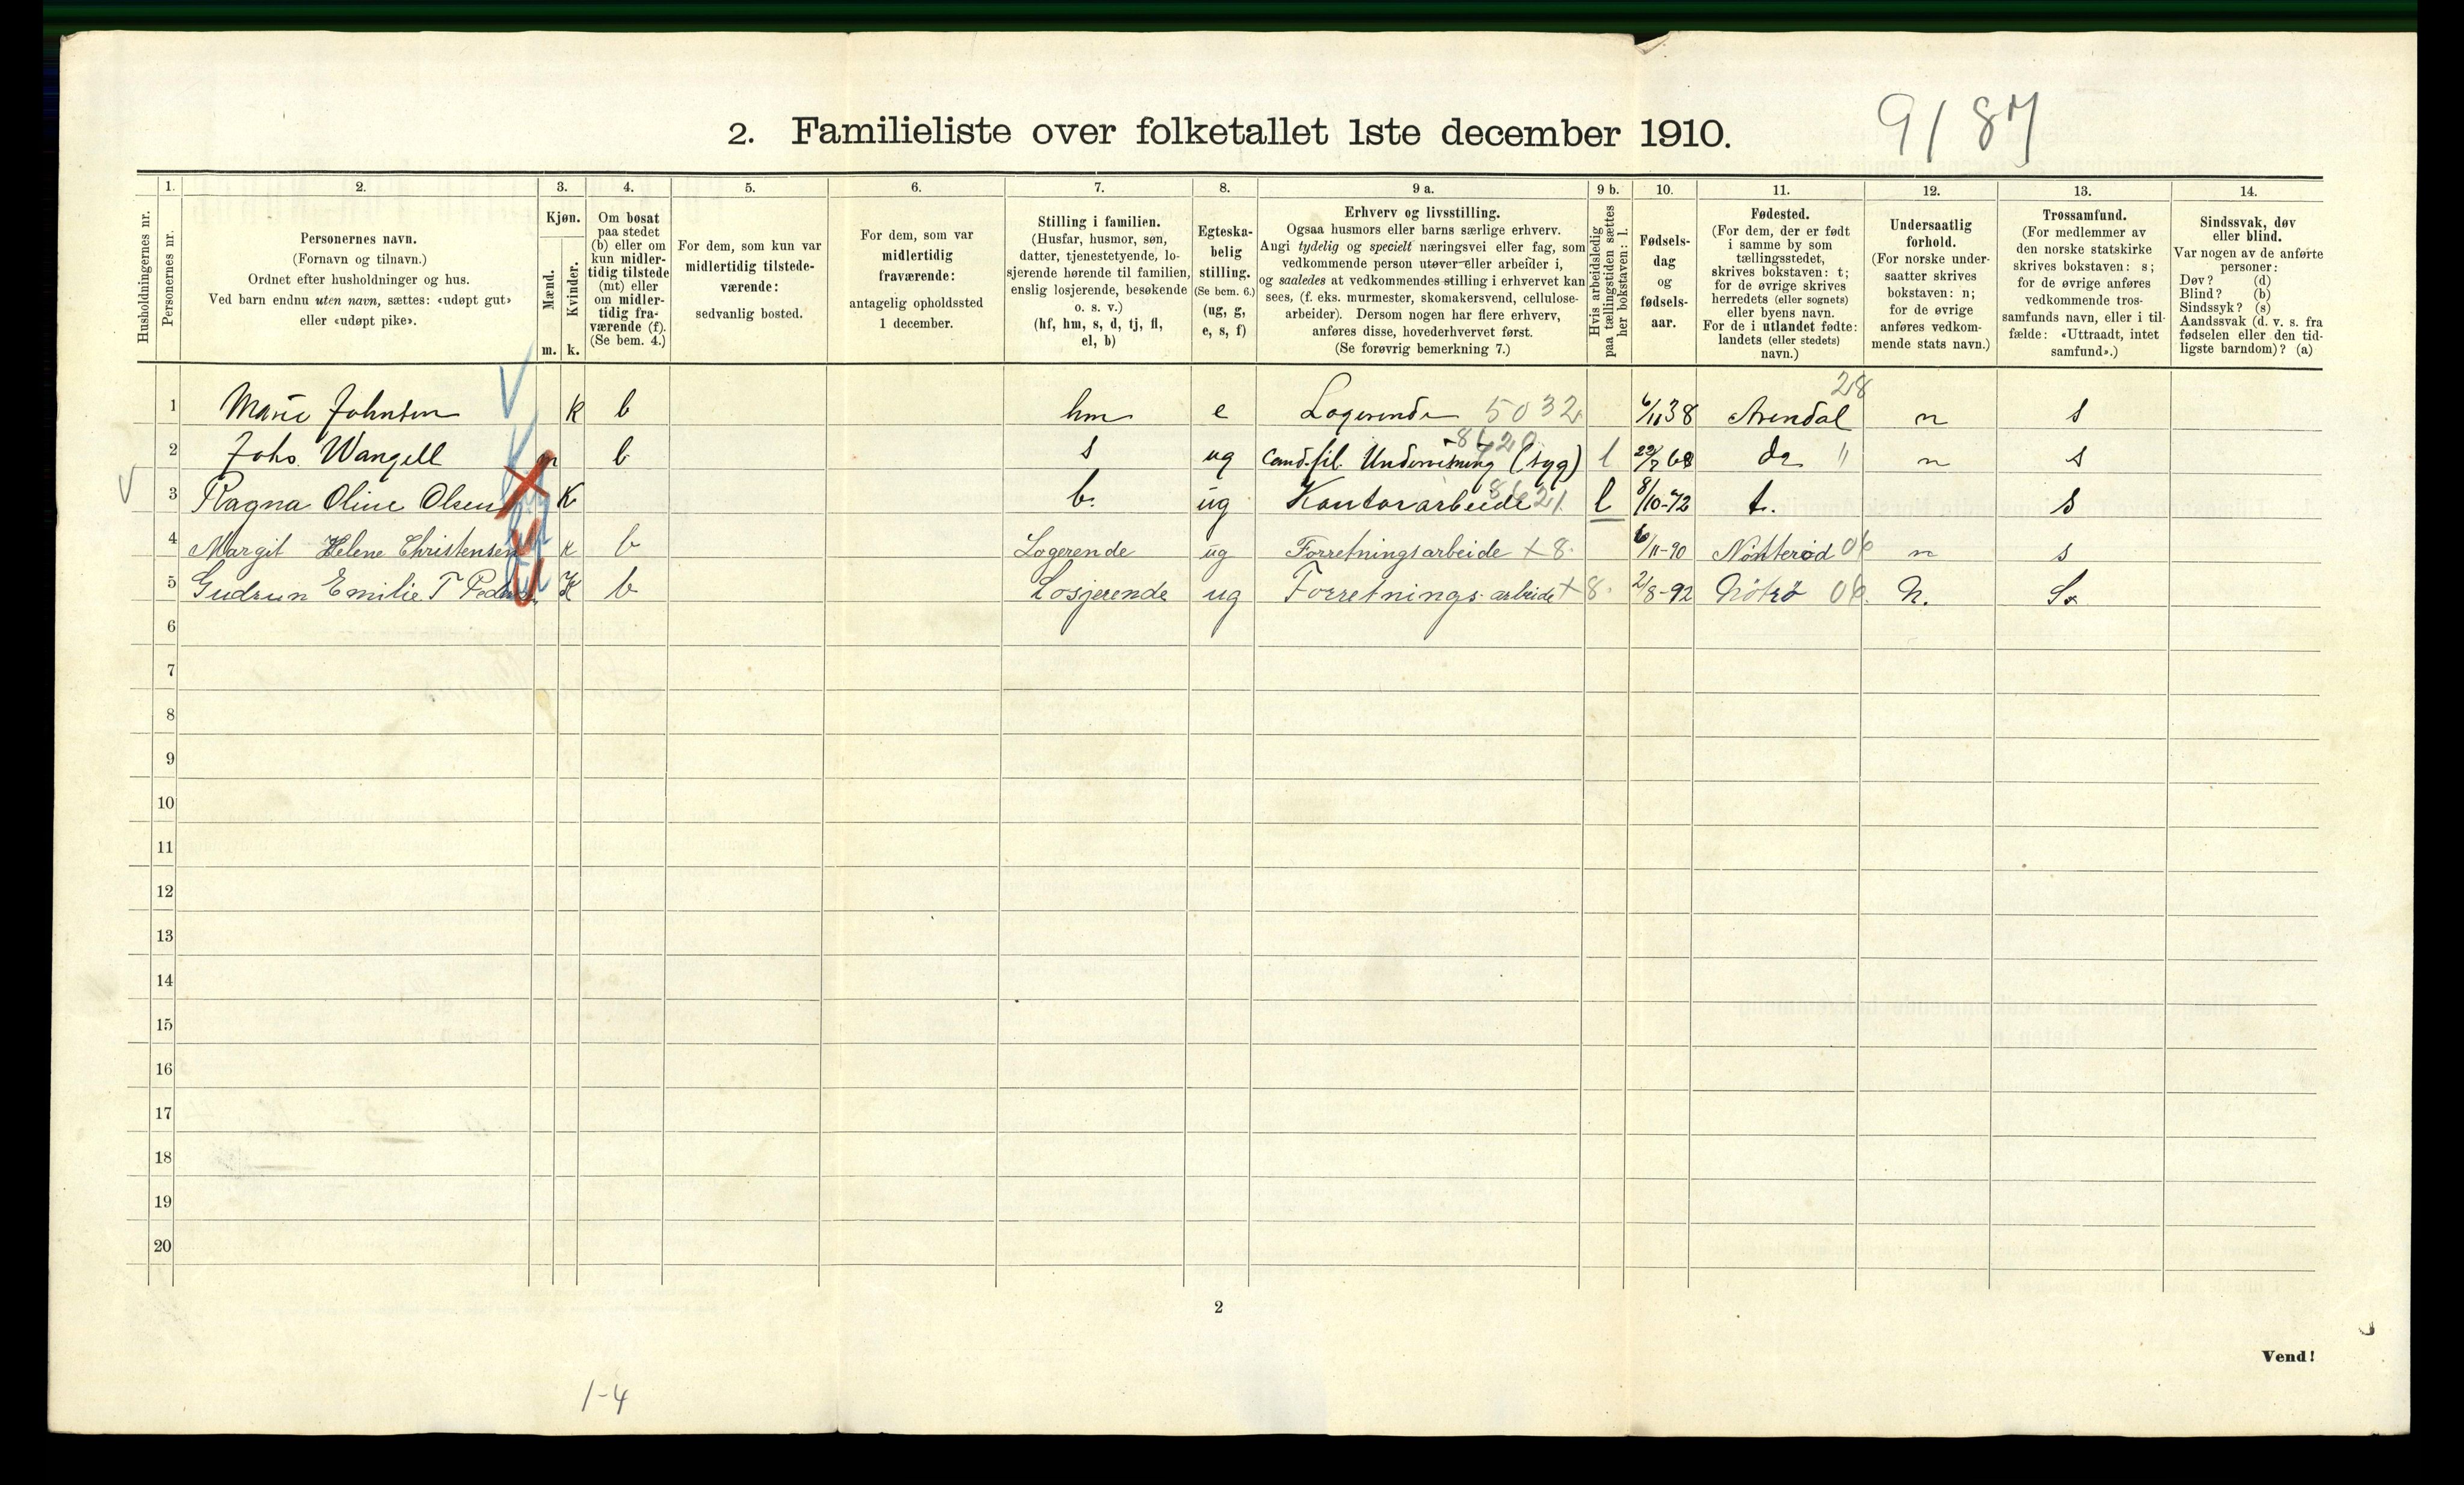 2. Familieliste over folketallet 1ste december 1910.
9/87
Husholdningernes nr.
1.
Personernes nr.
2.
Personernes navn.
(Fornavn og tilnavn.)
Ordnet efter husholdninger og hus.
Ved barn endnu uten navn, sættes: «udøpt gut»
eller «udøpt pike».
3.
Kjøn.
Mænd.
Kvinder.
m. k.
4.
Om bosat
paa stedet
(b) eller om
kun midler-
tidig tilstede
(mt) eller
om midler-
tidig fra-
værende (f).
(Se bem. 4.)
5.
For dem, som kun var
midlertidig tilstede-
værende:
sedvanlig bosted.
6.
For dem, som var
midlertidig
fraværende:
antagelig opholdssted
1 december.
7.
Stilling i familien.
(Husfar, husmor, søn,
datter, tjenestetyende, lo-
sjerende hørende til familien,
enslig losjerende, besøkende
o. s. v.)
(hf, hm, s, d, tj, fl,
el, b)
8.
Egteska-
belig
stilling.
(Se bem. 6.)
(ug, g,
e, s, f)
9 a.
Erhverv og livsstilling.
Ogsaa husmors eller barns særlige erhverv.
Angi tydelig og specielt næringsvei eller fag, som
vedkommende person utøver eller arbeider i,
og saaledes at vedkommendes stilling i erhvervet kan
sees, (f. eks. murmester, skomakersvend, cellulose-
arbeider). Dersom nogen har flere erhverv,
anføres disse, hovederhvervet først.
(Se forøvrig bemerkning 7.)
9 b.
Hvis arbeidsledig
paa tællingstiden sættes
her bokstaven: l.
10.
Fødsels-
dag
og
fødsels-
aar.
11.
Fødested.
(For dem, der er født
i samme by som
tællingsstedet,
skrives bokstaven: t;
for de øvrige skrives
herredets (eller sognets)
eller byens navn.
For de i utlandet fødte:
landets (eller stedets)
navn.)
12.
Undersaatlig
forhold.
(For norske under-
saatter skrives
bokstaven: n;
for de øvrige
anføres vedkom-
mende stats navn.)
13.
Trossamfund.
(For medlemmer av
den norske statskirke
skrives bokstaven: s;
for de øvrige anføres
vedkommende tros-
samfunds navn, eller i til-
fælde: «Uttraadt, intet
samfund».)
14.
Sindssvak, døv
eller blind.
Var nogen av de anførte
personer:
Døv? (d)
Blind? (b)
Sindssyk? (s)
Aandssvak (d. v. s. fra
fødselen eller den tid-
ligste barndom)? (a)
28
1 Marie Johnsen k b hm e Logerende 5032 6/11 38 Arendal n s
2 Johs. Wangell m b s ug Cand.fil. Undervisning (syg) 8620 l 22/7 68 do " n s
3 Ragna Oline Olsen K b. ug Kontorarbeide 8621. l 8/10-72 t. s
4 Margit Helene Christensen k b Logerende ug Forretningsarbeide +8. 6/11-90 Nøtterød 06 n s
5 Gudrun Emilie T Pedersen K b Losjerende ug Forretnings-arbeide +8. 2/8-92 Nötrö 06. N. S.
6
7
8
9
10
11
12
13
14
15
16
17
18
19
20
2
Vend!
1-4